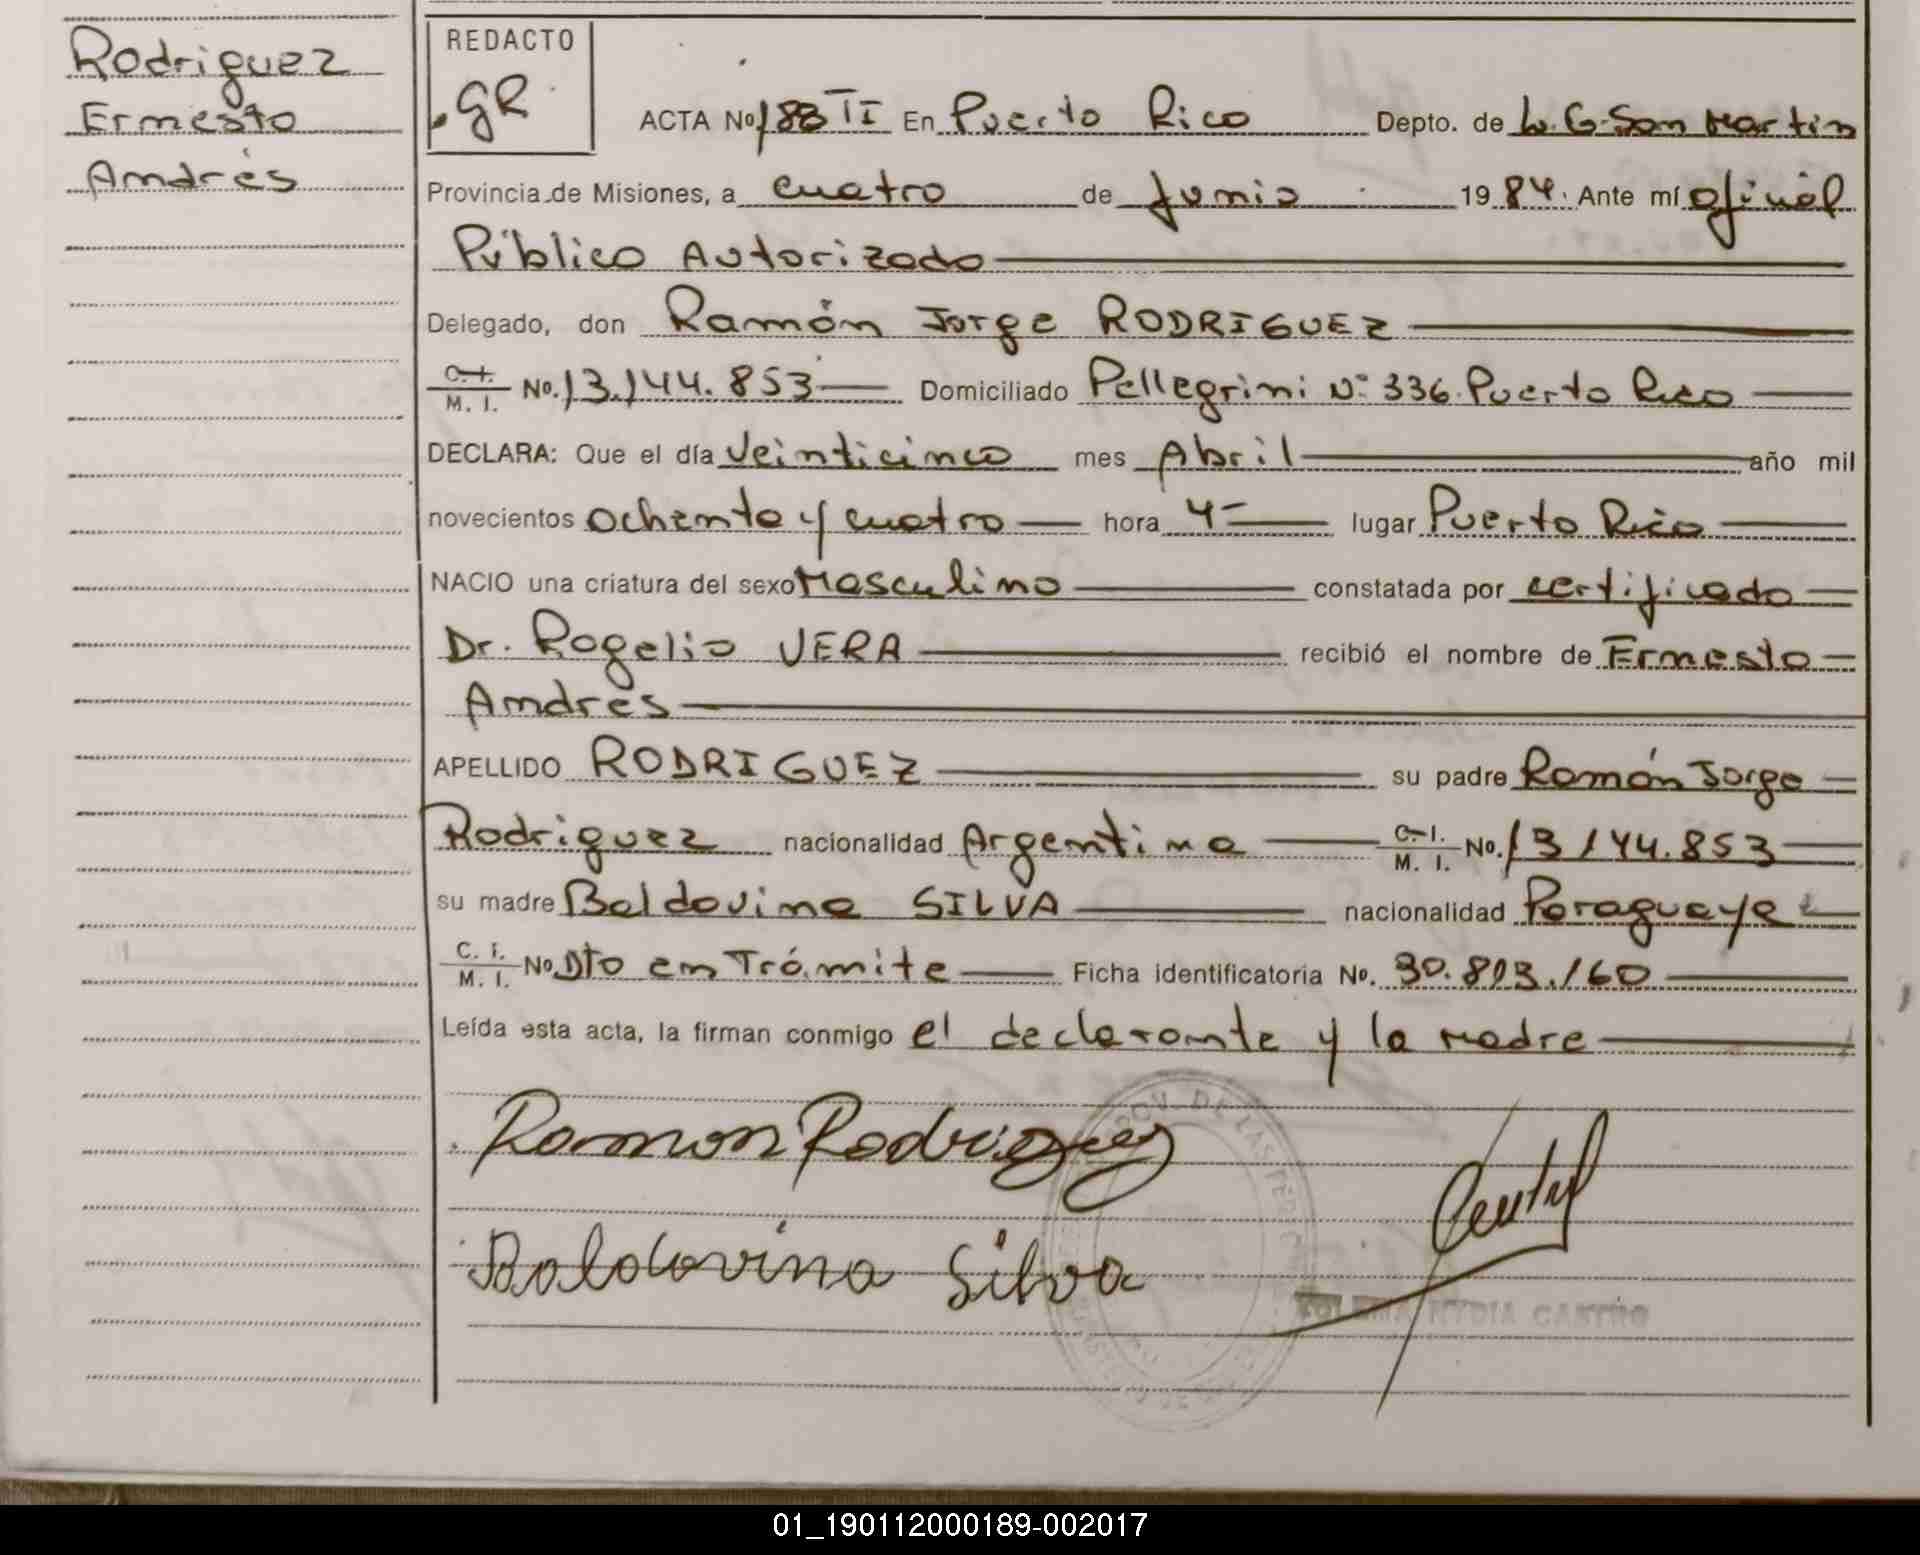 Rodriguez
Ernesto
Andrés
REDACTO
GR
ACTA No 188 TI En Puerto Rico Depto. de L. G. San Martin
Provincia de Misiones, a cuatro de Junio 19 84. Ante mí oficial
Público Autorizado
Delegado, don Ramón Jorge RODRIGUEZ
C. I. M. I. No. 13.144.853 Domiciliado Pellegrini N° 336. Puerto Rico
DECLARA: Que el día veinticinco mes Abril año mil
novecientos ochenta y cuatro hora 4- lugar Puerto Rico
NACIO una criatura del sexo Masculino constatada por certificado
Dr. Rogelio VERA recibió el nombre de Ernesto
Andres
APELLIDO RODRIGUEZ su padre Ramón Jorge
Rodriguez nacionalidad Argentina C. I. M. I. No. 13144.853
su madre Baldovina SILVA nacionalidad Paraguaya
C. I. M. I. No Dto en Trámite Ficha identificatoria No. 30.893.160
Leída esta acta, la firman conmigo el declarante y la madre
Ramon Rodriguez
Baldovina Silva
NYDIA CASTRO
01_190112000189-002017